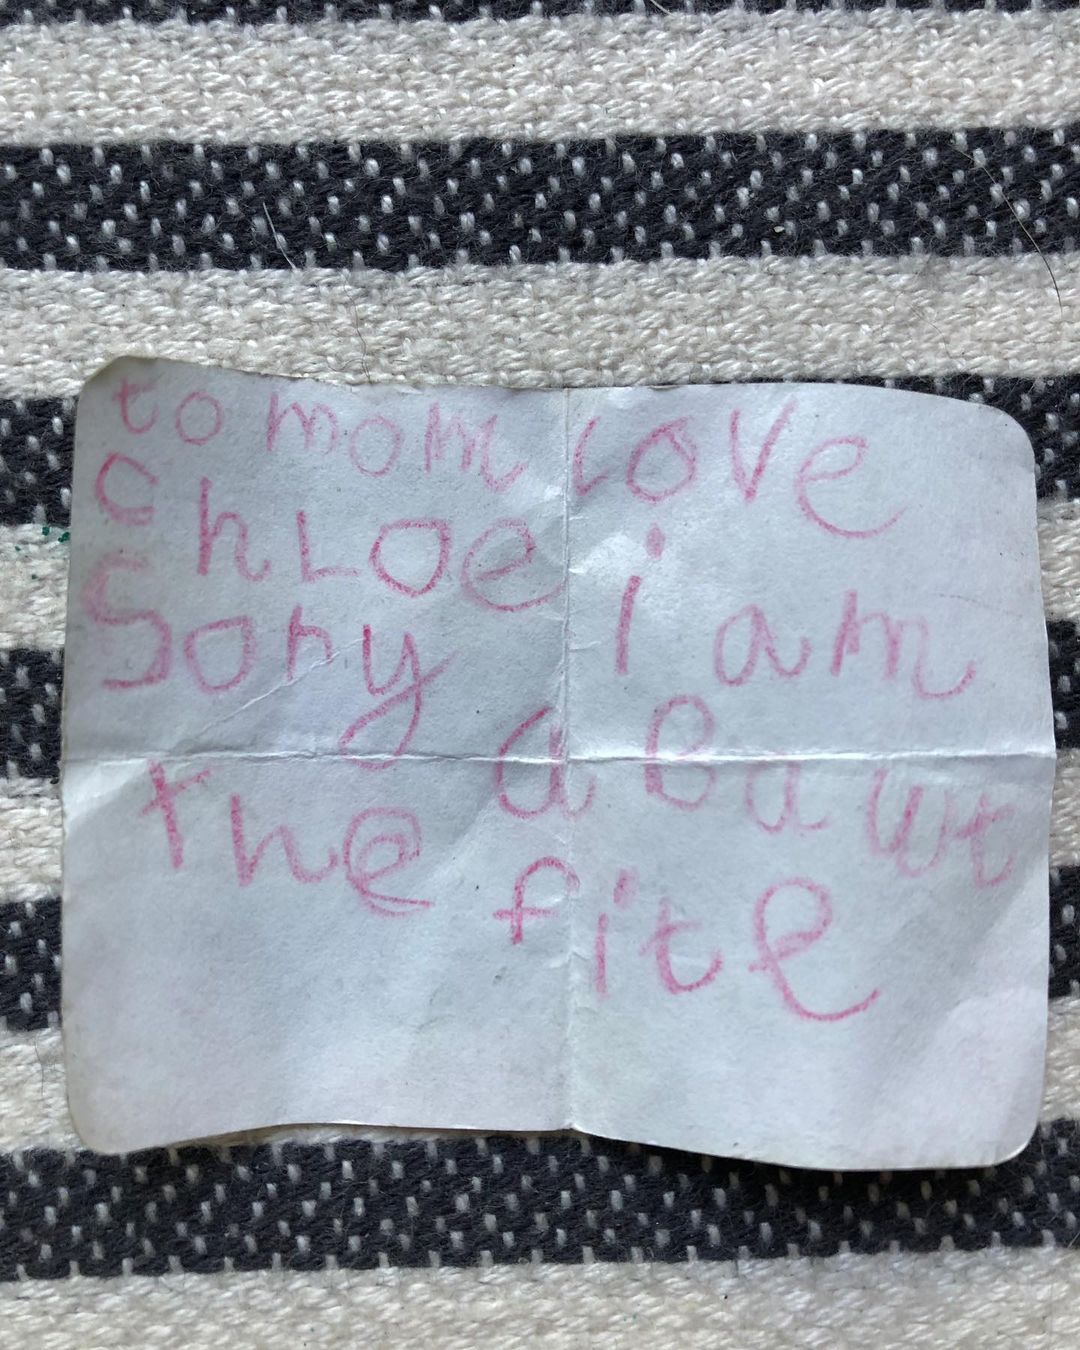 to mom Love
ChLoe
Sory i am
a Bawt
the fite